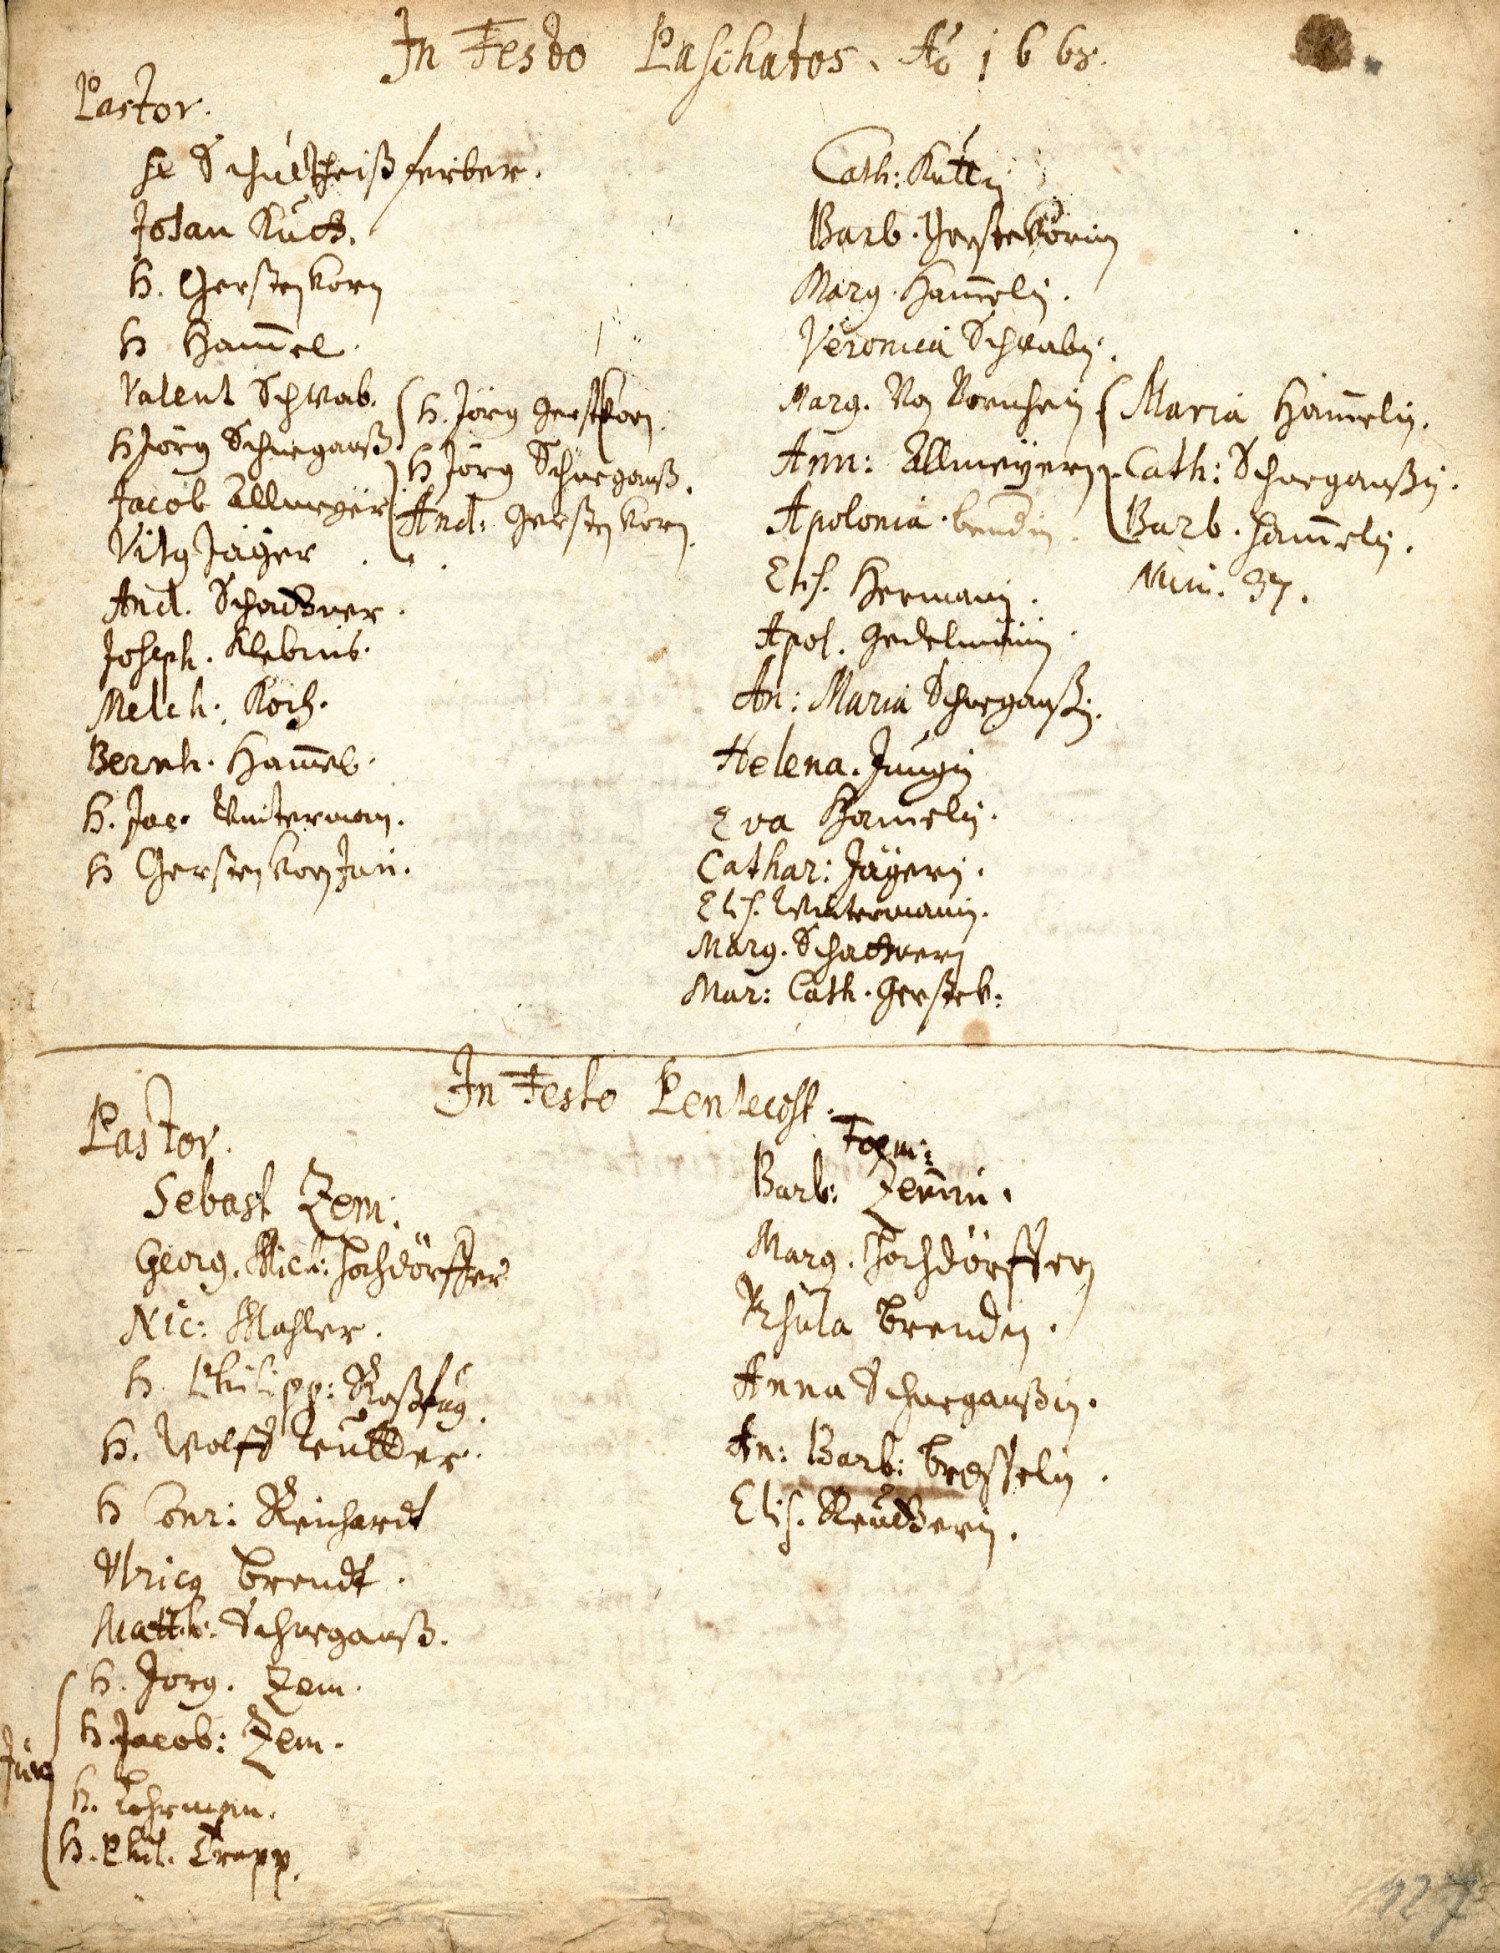 In Festo Paschatos. Ao 1668.
Pastor.
H Schultheiß ferber.
Johan Kuch.
H. Gerstenkorn
H Ham̄el.
Valent Schwab.
H Jörg Schnegauß.
Jacob Allmeyer
Vitq Jäger
And. Schackner.
Joseph. Klebius.
Melch. Koch.
Bernh. Ham̄el.
H. Jac. Winterman.
H Gerstenkorn Jun.
H. Jörg Gerstkorn.
H Jörg Schnegauß.
And: Gerstenkorn.
Cath:
Barb. Gerstekörin
Marg. Ham̄elin.
Veronica Schwabin.
Marg. Von Bornheim
Ann: Allmeyern
Apolonia. bendin.
Elis. Hermanin.
Apol. Gedelmänin.
An: Maria Schnegaußin.
Helena. Jungin
Eva Hamelin.
Cathar: Jägerin.
Elis. Wintermanin.
Marg. Schacknern
Mar: Cath. Gerstek:
Maria Ham̄elin.
Cath: Schnegaußin.
Barb. Ham̄elin.
Num. 37.
In Festo Pentecost.
Pastor.
Sebast Zem.
Georg. Mich: Hochdörffer
Nic: Mahler.
H. Philipp:
H. Wolff
H Conr: Reichardt
Ulricq Brendt.
Matth: Schnegauß.
H. Jörg. Zem.
H. Jacob: Zem.
Juv
H. Lehrman.
H. Phil. Trapp.
Foem:
Barb: Zemin.
Marg. Hochdörffern
Rhsula Brendin.
Anna Schnegaußin.
An: Barb: Bresselin.
Elis.
127